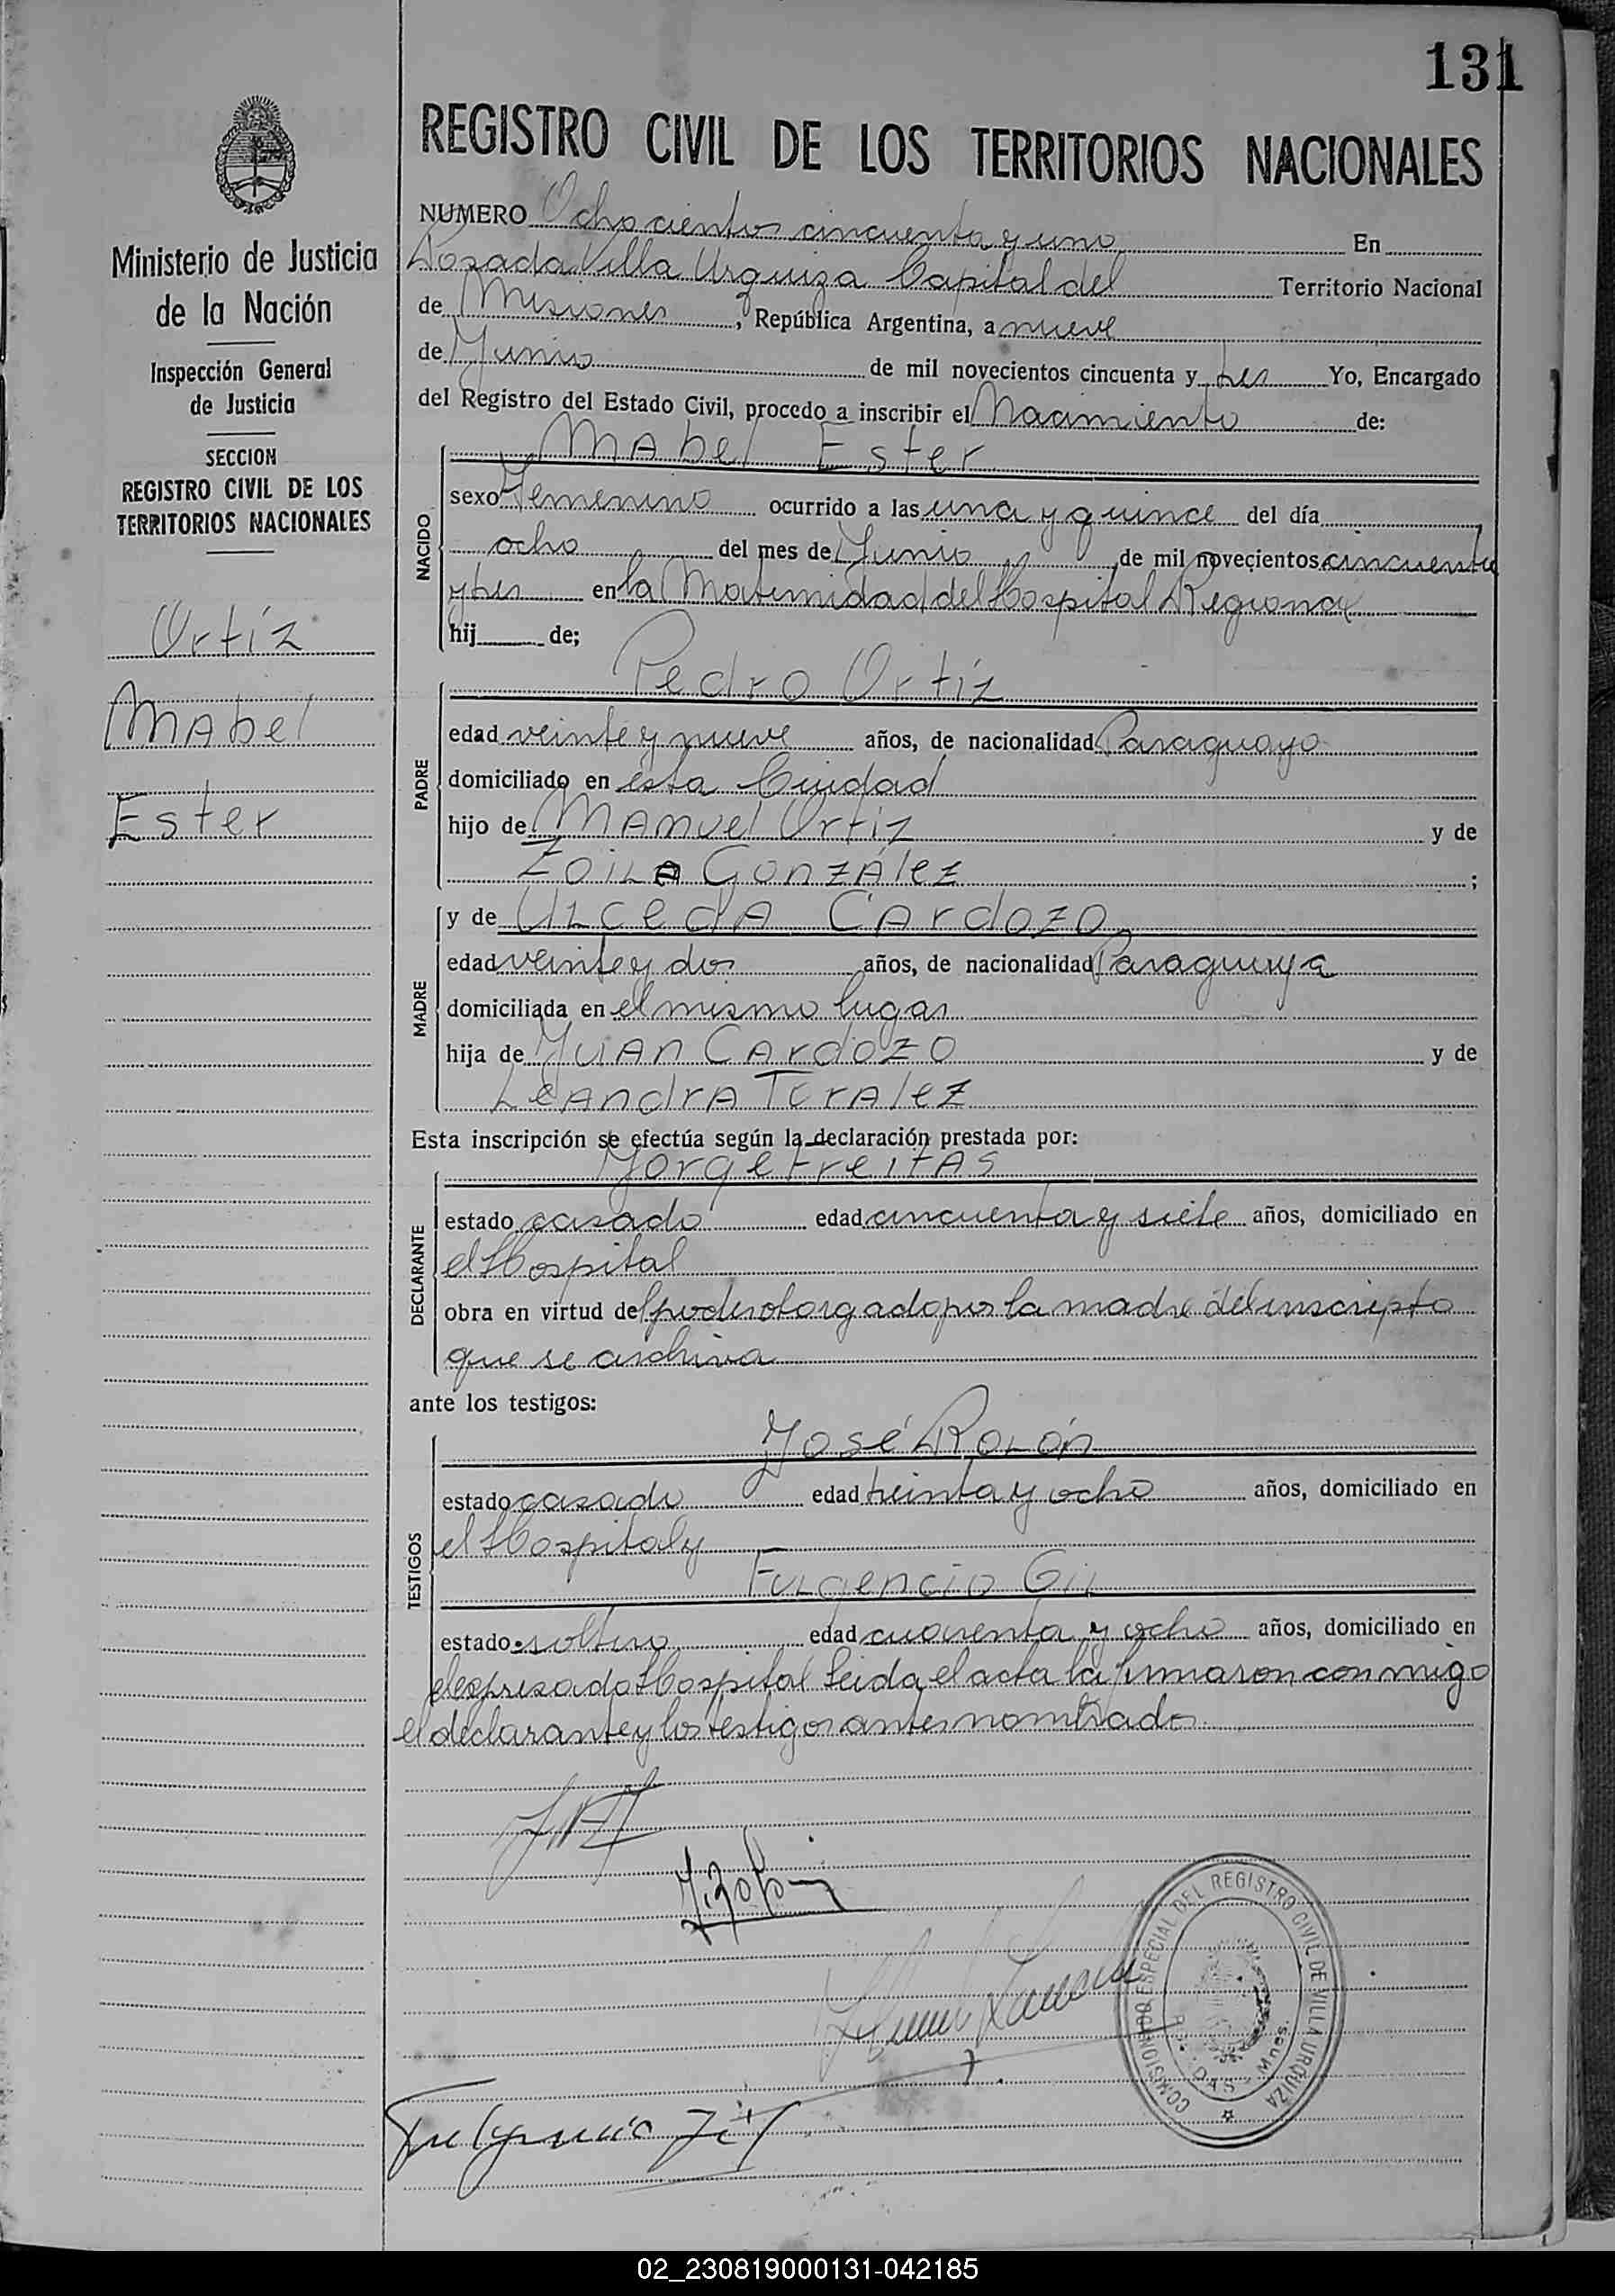 131
REGISTRO CIVIL DE LOS TERRITORIOS NACIONALES
Ministerio de Justicia
de la Nación
Inspección General
de Justicia
SECCION
REGISTRO CIVIL DE LOS
TERRITORIOS NACIONALES
Ortíz
Mabel
Ester
NUMERO Ochocientos cincuenta y uno En
Posadas Villa Urquiza Capital del Territorio Nacional
de Misiones, República Argentina, a nueve
de Junio de mil novecientos cincuenta y tres Yo, Encargado
del Registro del Estado Civil, procedo a inscribir el Nacimiento de:
NACIDO
Mabel Ester
sexo Femenino ocurrido a las una y quince del día
ocho del mes de Junio de mil novecientos cincuenta
y tres en la Maternidad del Hospital Regional
hij de;
PADRE
Pedro Ortíz
edad veinte y nueve años, de nacionalidad Paraguayo
domiciliado en ésta Ciudad
hijo de Manuel Ortíz y de
Zoila González ;
MADRE
y de Ulceda Cardozo
edad veinte y dos años, de nacionalidad Paraguaya
domiciliada en el mismo lugar
hija de Juan Cardozo y de
Leandra Toralez
Esta inscripción se efectúa según la declaración prestada por:
DECLARANTE
Jorge Freitas
estado casado edad cincuenta y siete años, domiciliado en
el Hospital
obra en virtud del poder otorgado por la madre del inscripto
que se archiva
ante los testigos:
TESTIGOS
José Rolón
estado casado edad treinta y ocho años, domiciliado en
el Hospital y
Fulgencio Gil
estado soltero edad cuarenta y ocho años, domiciliado en
el expresado Hospital Leida el acta la firmaron conmigo
el declarante y los testigos antes nombrados
COMISIONADO ESPECIAL DEL REGISTRO CIVIL DE VILLA URQUIZA
Mnes.
Fulgencio Gil
02_230819000131-042185